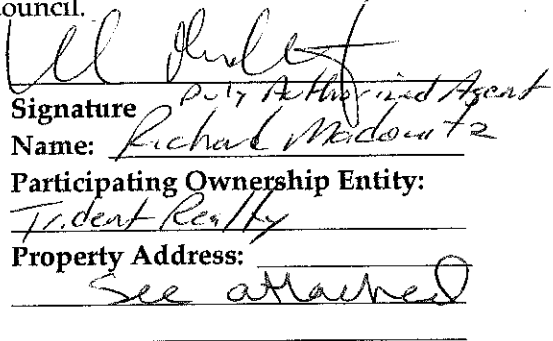 ouncil.
Signature Duly Authorized Agent
Name: Richard Madowitz
Participating Ownership Entity:
Trident Realty
Property Address:
See attached